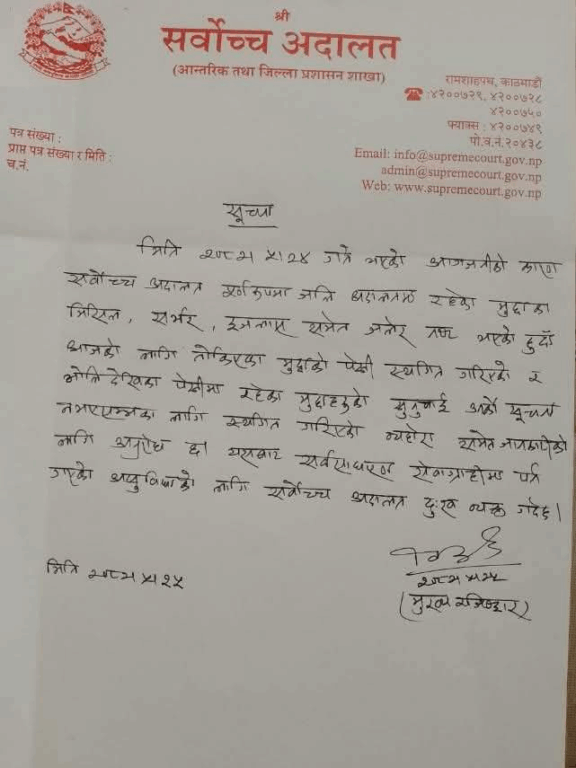 श्री
सर्वोच्च अदालत
(आन्तरिक तथा जिल्ला प्रशासन शाखा)
रामशाहपथ, काठमाडौं
☎ :४२००७२९, ४२००७२८
४२००७५०
फ्याक्स : ४२००७४९
पो.व.नं.२०४३८
Email: info@supremecourt.gov.np
admin@supremecourt.gov.np
Web: www.supremecourt.gov.np
पत्र संख्या :
प्राप्त पत्र संख्या र मिति :
च.नं.
सूचना
मिति २०८२।५।२४ गते भएको आगजनीको कारण
सर्वोच्च अदालत जलि अदालतमा रहेका मुद्दाका
मिसिल, सर्भर, इजलास समेत जलेर नष्ट भएको हुदाँ
आजको लागि तोकिएका मुद्दाको पेसी स्थगित गरिएको र
भोलिदेखिका पेसीमा रहेका मुद्दाहरुको सुनुवाई अर्को सूचना
नभएसम्मका लागि स्थगित गरिएको व्यहोरा समेत जानकारीको
लागि अनुरोध छ। यसबाट सर्वसाधारण सेवाग्राहीमा पर्न
गएको असुविधाको लागि सर्वोच्च अदालत दुःख व्यक्त गर्दछ।
मिति २०८२।५।२५
२०८२।५।२५
(मुख्य रजिष्ट्रार)